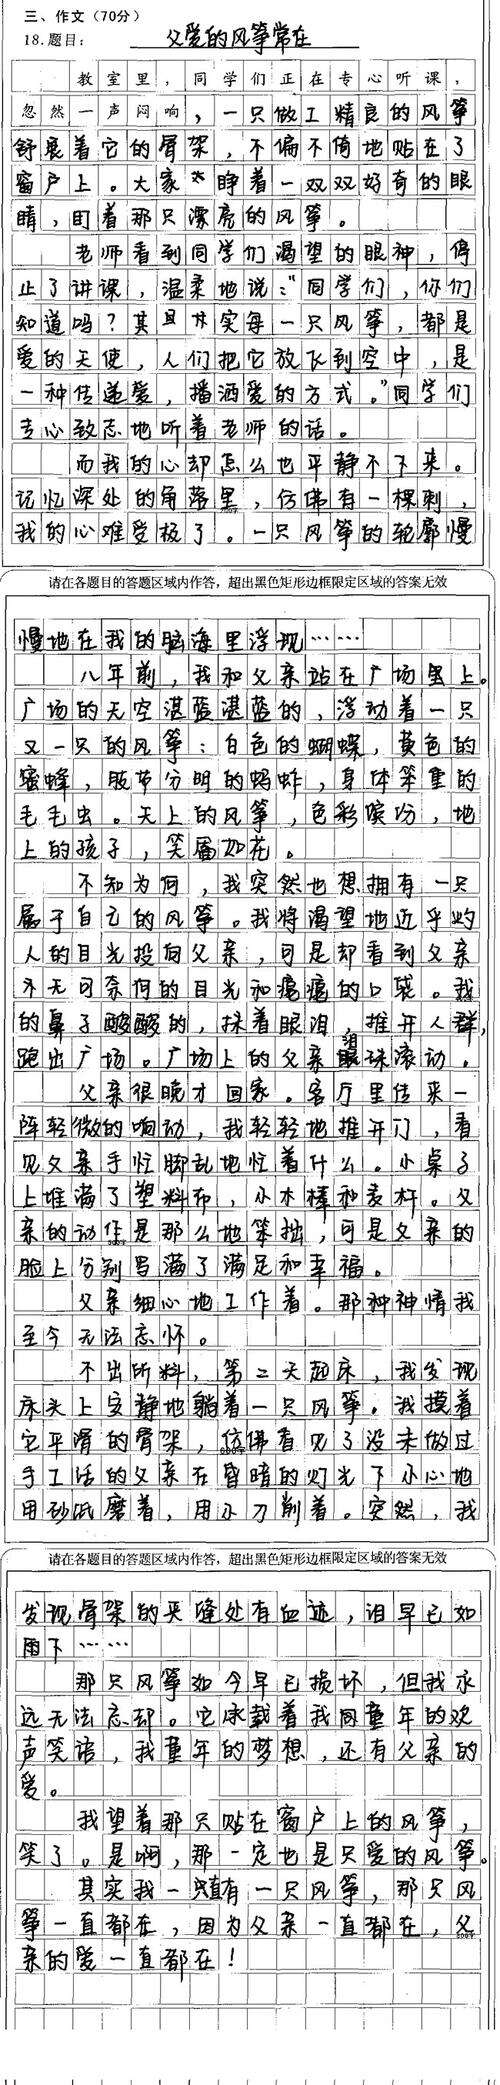 三、作文（70分）
18.题目： 父爱的风筝常在
教室里，同学们正在专心听课，
忽然一声闷响，一只做工精良的风筝
舒展着它的骨架，不偏不倚地贴在了
窗户上。大家睁着一双双好奇的眼
睛，盯着那只漂亮的风筝。
老师看到同学们渴望的眼神，停
止了讲课，温柔地说：“同学们，你们
知道吗？其实每一只风筝，都是
爱的天使，人们把它放飞到空中，是
一种传递爱，播洒爱的方式。”同学们
专心致志地听着老师的话。
而我的心却怎么也平静不下来。
记忆深处的角落里，仿佛有一棵刺，
我的心难受极了。一只风筝的轮廓慢
请在各题目的答题区域内作答，超出黑色矩形边框限定区域的答案无效
慢地在我的脑海里浮现……
八年前，我和父亲站在广场上。
广场的天空湛蓝湛蓝的，浮动着一只
又一只的风筝：白色的蝴蝶，黄色的
蜜蜂，肢节分明的蚂蚱，身体笨重的
毛毛虫。天上的风筝，色彩缤纷，地
上的孩子，笑靥如花。
不知为何，我突然也想拥有一只
属于自己的风筝。我将渴望地近乎灼
人的目光投向父亲，可是却看到父亲
无可奈何的目光和瘪瘪的口袋。我
的鼻子酸酸的，抹着眼泪，推开人群，
跑出广场。广场上的父亲泪珠滚动。
父亲很晚才回家。客厅里传来一
阵轻微的响动，我轻轻地推开门，看
见父亲手忙脚乱地忙着什么。小桌子
上堆满了塑料布，小木棒和麦秆。父
亲的动作是那么地笨拙，可是父亲的
脸上分别写满了满足和幸福。
父亲细心地工作着。那种神情我
至今无法忘怀。
不出所料，第二天起床，我发现
床头上安静地躺着一只风筝。我摸着
它平滑的骨架，仿佛看见了没未做过
手工活的父亲在昏暗的灯光下小心地
用砂纸磨着，用小刀削着。突然，我
请在各题目的答题区域内作答，超出黑色矩形边框限定区域的答案无效
发现骨架的夹缝处有血迹，泪早已如
雨下……
那只风筝如今早已损坏，但我永
远无法忘却。它承载着我同童年的欢
声笑语，我童年的梦想，还有父亲的
爱。
我望着那只贴在窗户上的风筝，
笑了。是啊，那一定也是只爱的风筝。
其实我一直有一只风筝，那只风
筝一直都在，因为父亲一直都在，父
亲的爱一直都在！